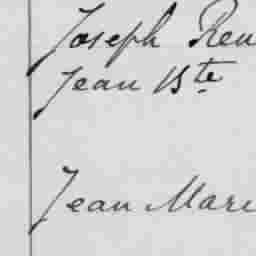 Joseph Ren
Jean Bte
Jean Mari